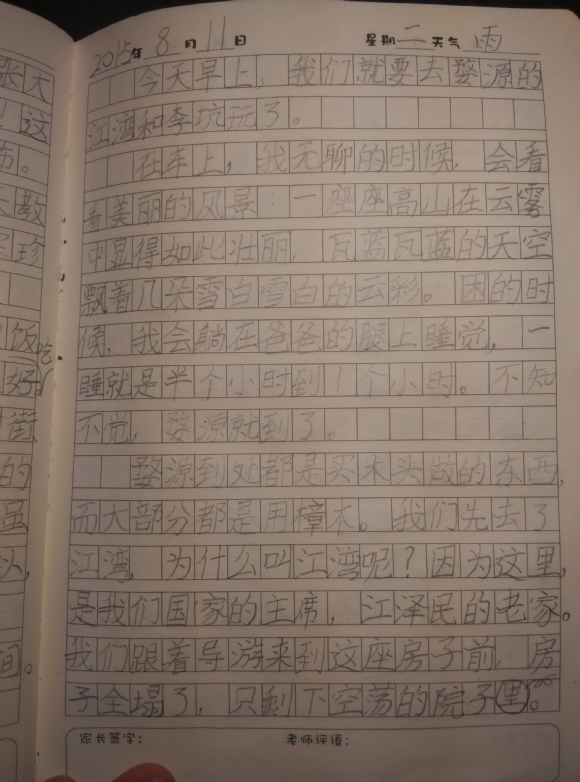 2015年8月11日 星期二天气雨
今天早上，我们就要去婺源的
江湾和李坑玩了。
在车上，我无聊的时候，会看
看美丽的风景，一座座高山在云雾
中显得如此壮丽，瓦蓝瓦蓝的天空
飘着几朵雪白雪白的云彩。困的时
候，我会躺在爸爸的腿上睡觉，一
睡就是半个小时到1个小时。不知
不觉，婺源就到了。
婺源到处都是买木头做的东西，
而大部分都是用樟木。我们先去了
江湾，为什么叫江湾呢？因为这里，
是我们国家的主席，江泽民的老家。
我们跟着导游来到这座房子前，房
子全塌了，只剩下空荡的院子里。
家长签字： 老师评语：